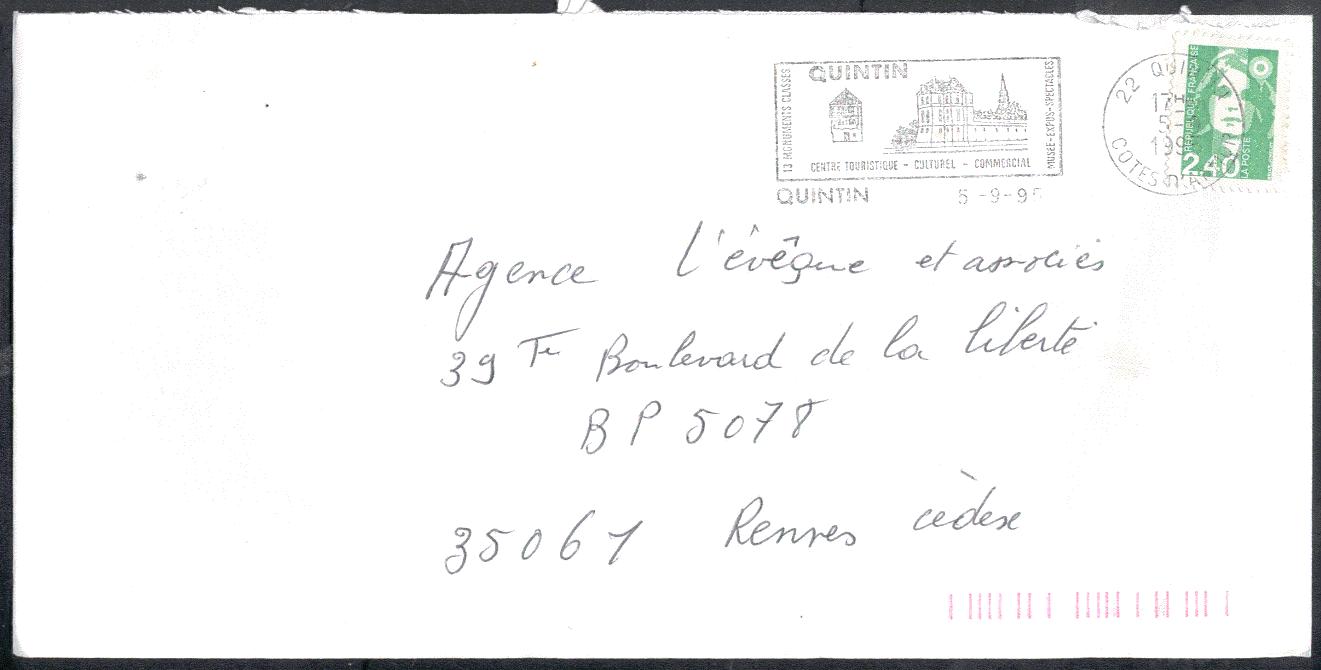 QUINTIN
13 MONUMENTS CLASSES
MUSEE-EXPOS-SPECTACLES
CENTRE TOURISTIQUE - CULTUREL - COMMERCIAL
QUINTIN 5-9-95
22 QUINTIN
17H
5-9
COTES D'ARMOR
REPUBLIQUE FRANÇAISE
2,40
LA POSTE
Agence l'évêque et associés
39 Boulevard de la liberté
BP 5078
35061 Rennes cèdex